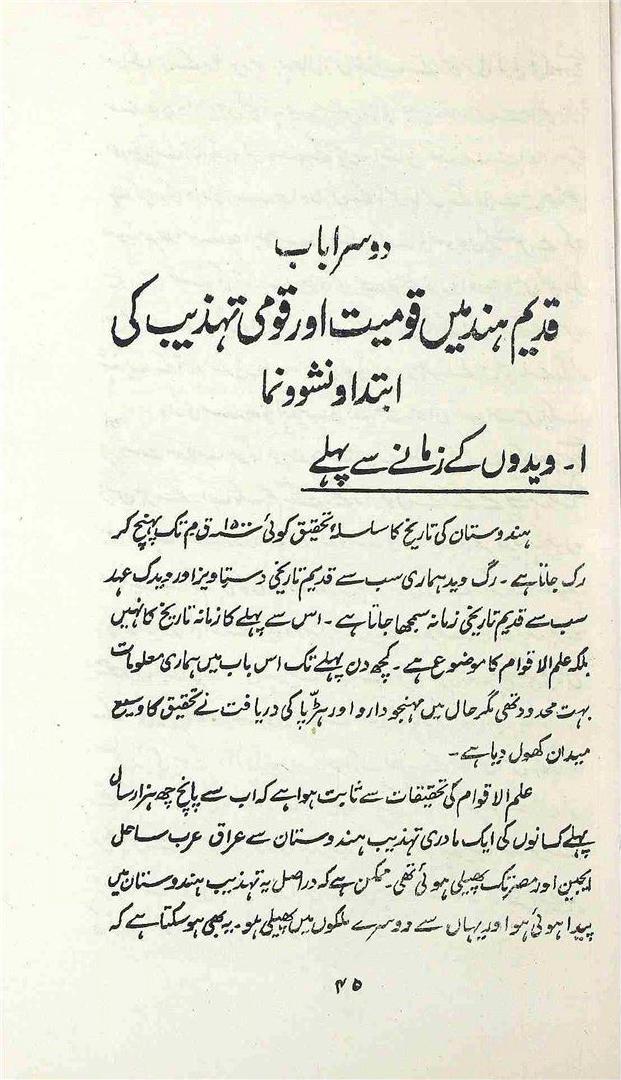 دوسرا باب
قدیم ہند میں قومیت اور قومی تہذیب کی
ابتدا و نشوونما
۱۔ ویدوں کے زمانے سے پہلے
ہندوستان کی تاریخ کا سلسلۂ تحقیق کوئی ۱۵۰۰ ق م تک پہنچ کر
رک جاتا ہے۔ رگ وید ہماری سب سے قدیم تاریخی دستاویز اور ویدک عہد
سب سے قدیم تاریخی زمانہ سمجھا جاتا ہے۔ اس سے پہلے کا زمانہ تاریخ کا نہیں
بلکہ علم الاقوام کا موضوع ہے۔ کچھ دن پہلے تک اس باب میں ہماری معلومات
بہت محدود تھی مگر حال میں مہنجودارو اور ہڑپا کی دریافت نے تحقیق کا وسیع
میدان کھول دیا ہے۔
علم الاقوام کی تحقیقات سے ثابت ہوا ہے کہ اب سے پانچ چھ ہزار سال
پہلے کسانوں کی ایک مادری تہذیب ہندوستان سے عراق عرب ساحل
ایجین اور مصر تک پھیلی ہوئی تھی۔ ممکن ہے کہ دراصل یہ تہذیب ہندوستان میں
پیدا ہوئی ہو اور یہاں سے دوسرے ملکوں میں پھیلی ہو۔ یہ بھی ہو سکتا ہے کہ
۴۵